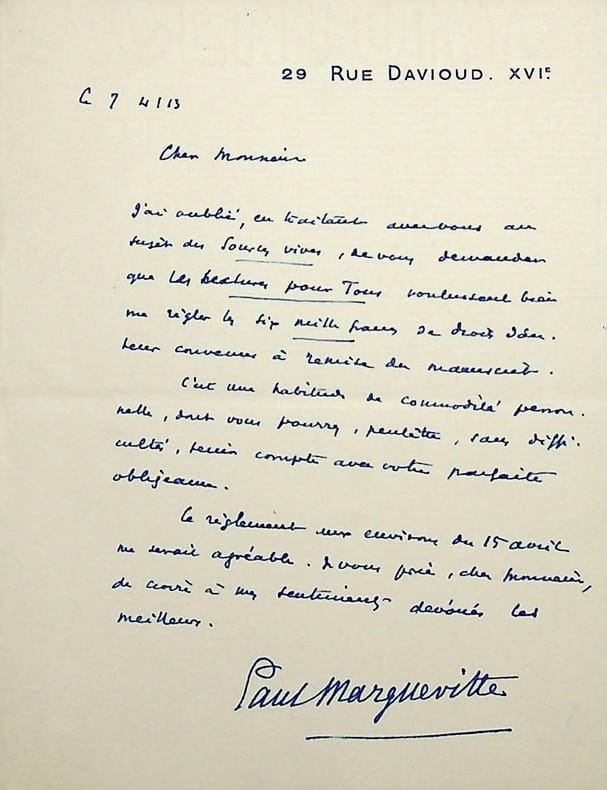 29 RUE DAVIOUD. XVIE.
Le 7 4/13
Cher Monsieur
J'ai oublié, en traitant avec vous au
sujet des Sources vives, de vous demander
que les Lectures pour Tous voulussent bien
me régler les six mille francs de droits d'au-
teur convenus à remise du manuscrit.
C'est une habitude de commodité person-
nelle, dont vous pourrez, peutêtre, sans diffi-
cultés, tenir compte avec votre parfaite
obligeance.
Ce règlement aux environs du 15 avril
me serait agréable. Je vous prie, cher Monsieur,
de croire à mes sentiments dévoués les
meilleurs.
Paul Margueritte